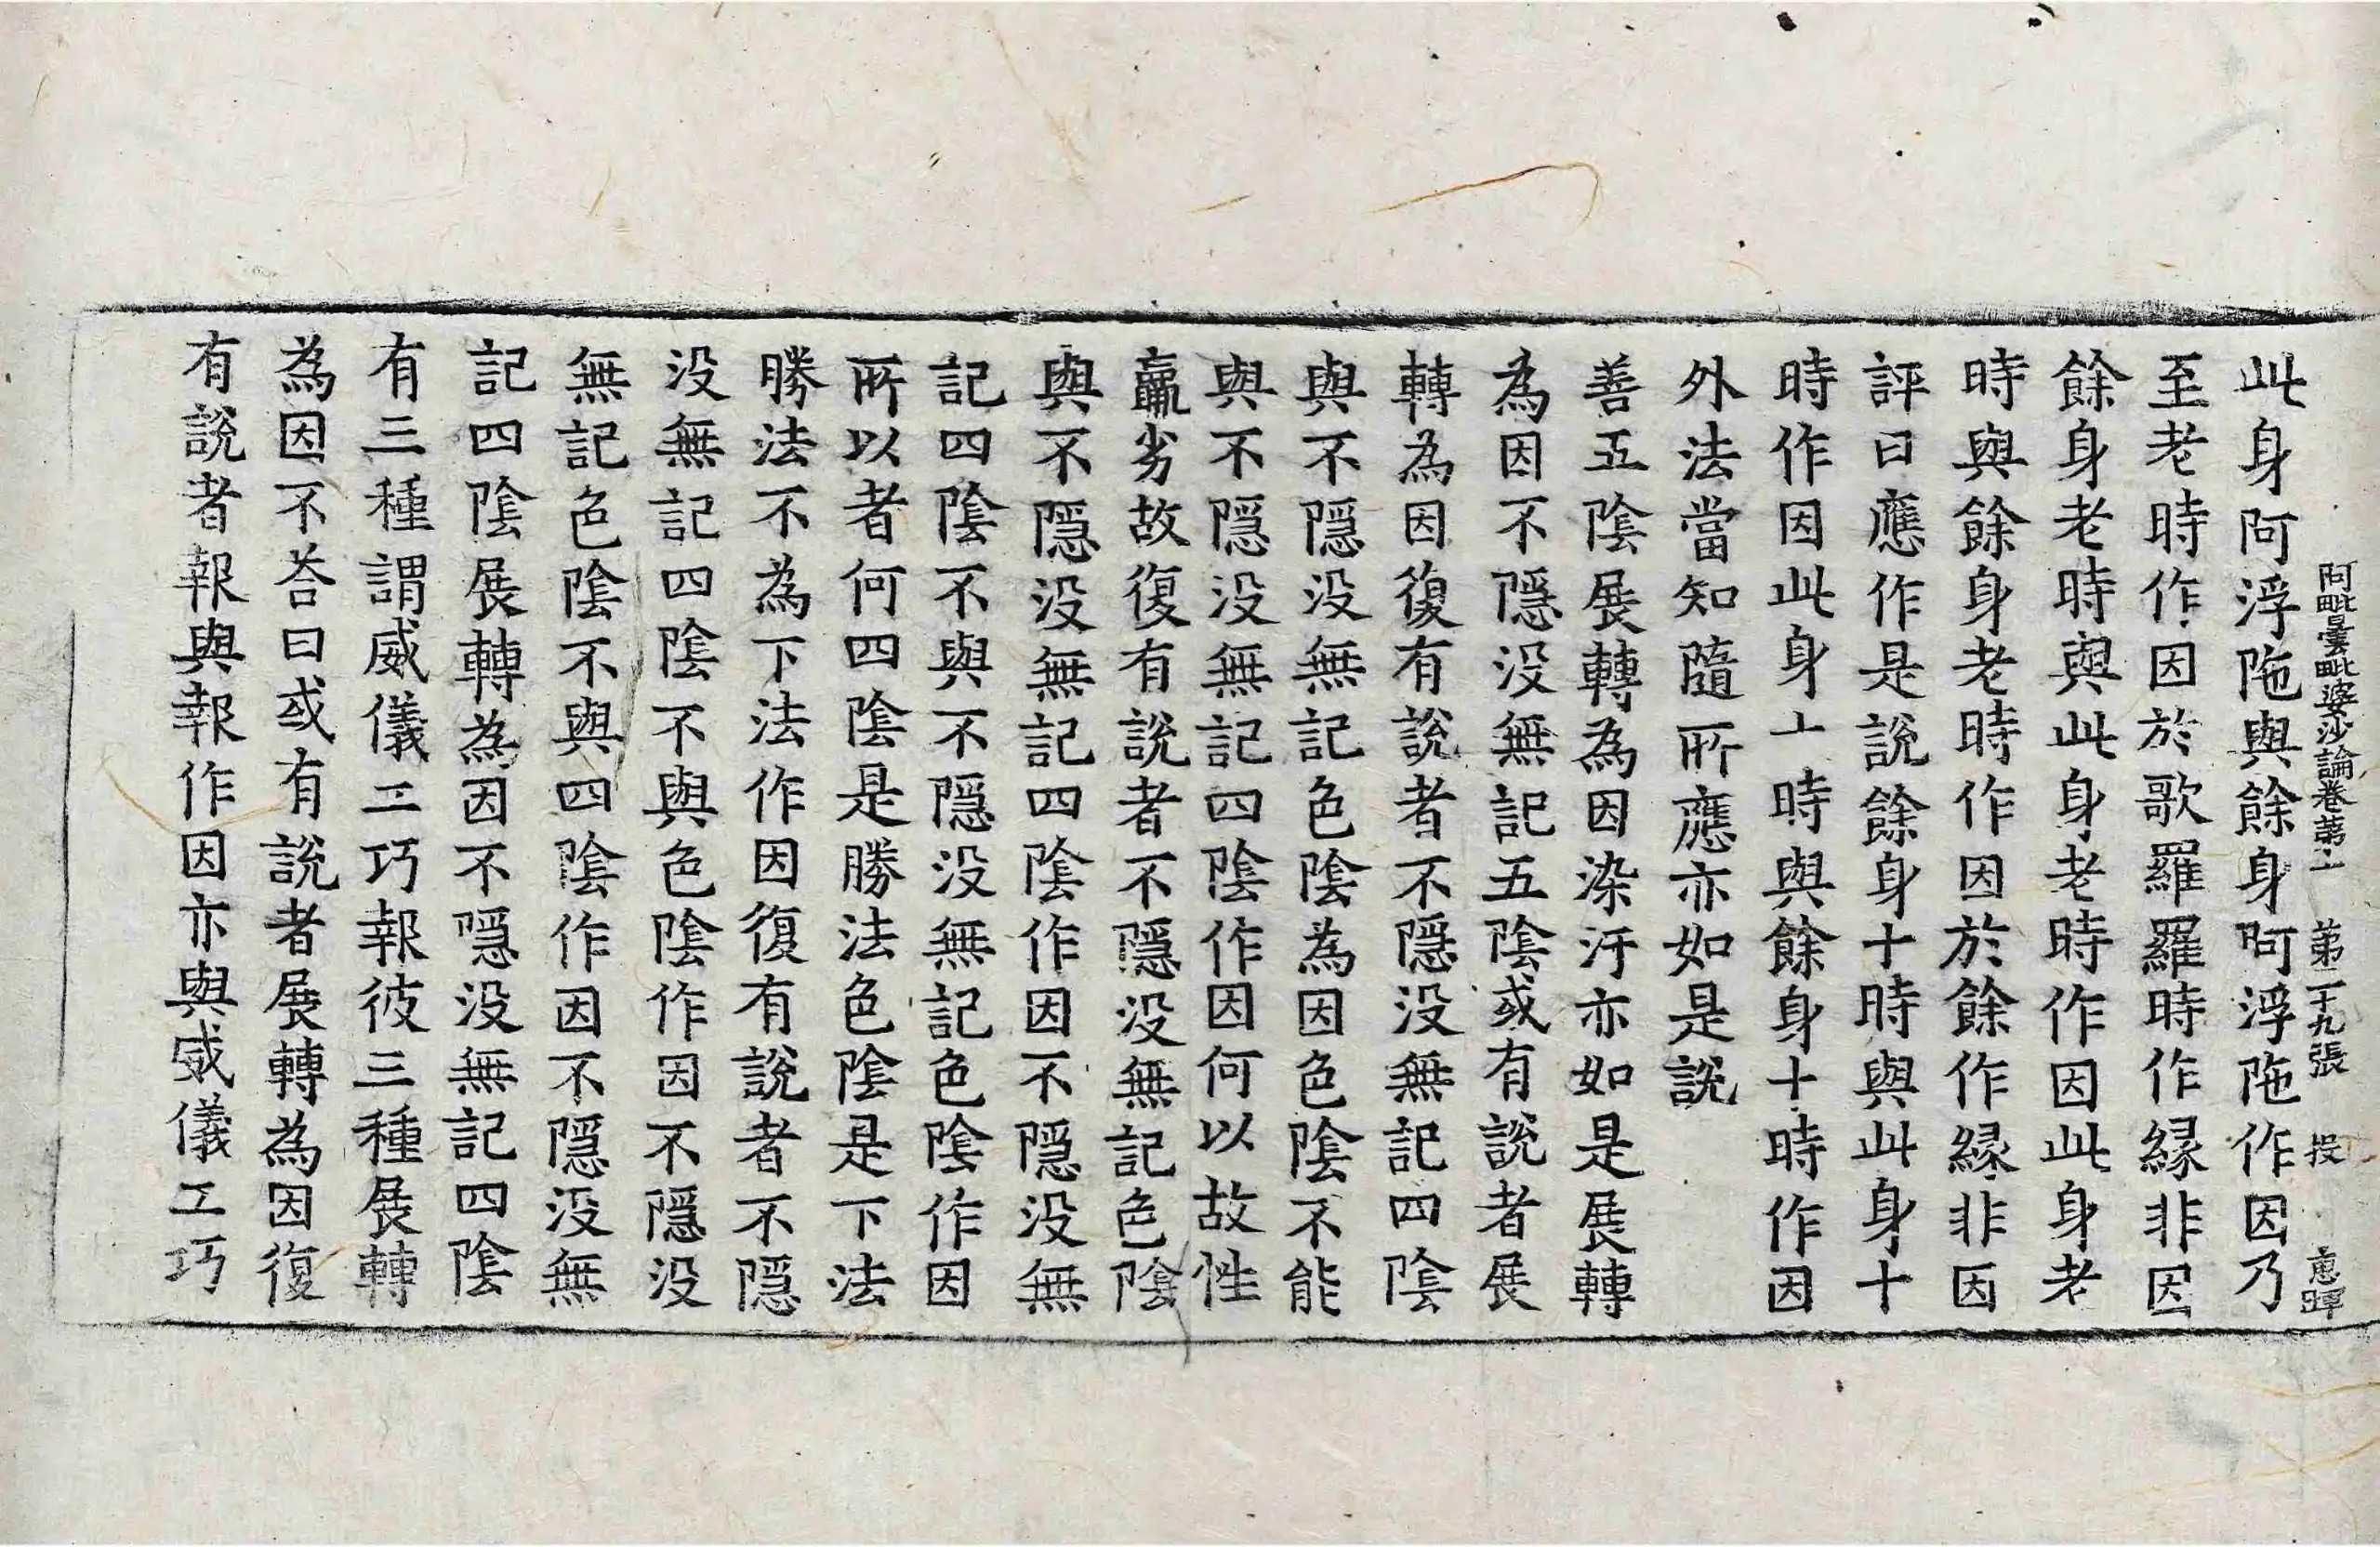 阿毗曇毗婆沙論卷第十 第二十九張 投 惠暉
此身阿浮陁與餘身阿浮陁作因乃
至老時作因於歌羅羅時作緣非因
餘身老時與此身老時作因此身老
時與餘身老時作因於餘作緣非因
評曰應作是說餘身十時與此身十
時作因此身十時與餘身十時作因
外法當知隨所應亦如是說
善五陰展轉為因染汙亦如是展轉
為因不隱没無記五陰或有說者展
轉為因復有說者不隱没無記四陰
與不隱没無記色陰為因色陰不能
與不隱没無記四陰作因何以故性
羸劣故復有說者不隱没無記色陰
與不隱没無記四陰作因不隱没無
記四陰不與不隱没無記色陰作因
所以者何四陰是勝法色陰是下法
勝法不為下法作因復有說者不隱
没無記四陰不與色陰作因不隱没
無記色陰不與四陰作因不隱没無
記四陰展轉為因不隱没無記四陰
有三種謂威儀工巧報彼三種展轉
為因不荅曰或有說者展轉為因復
有說者報與報作因亦與威儀工巧